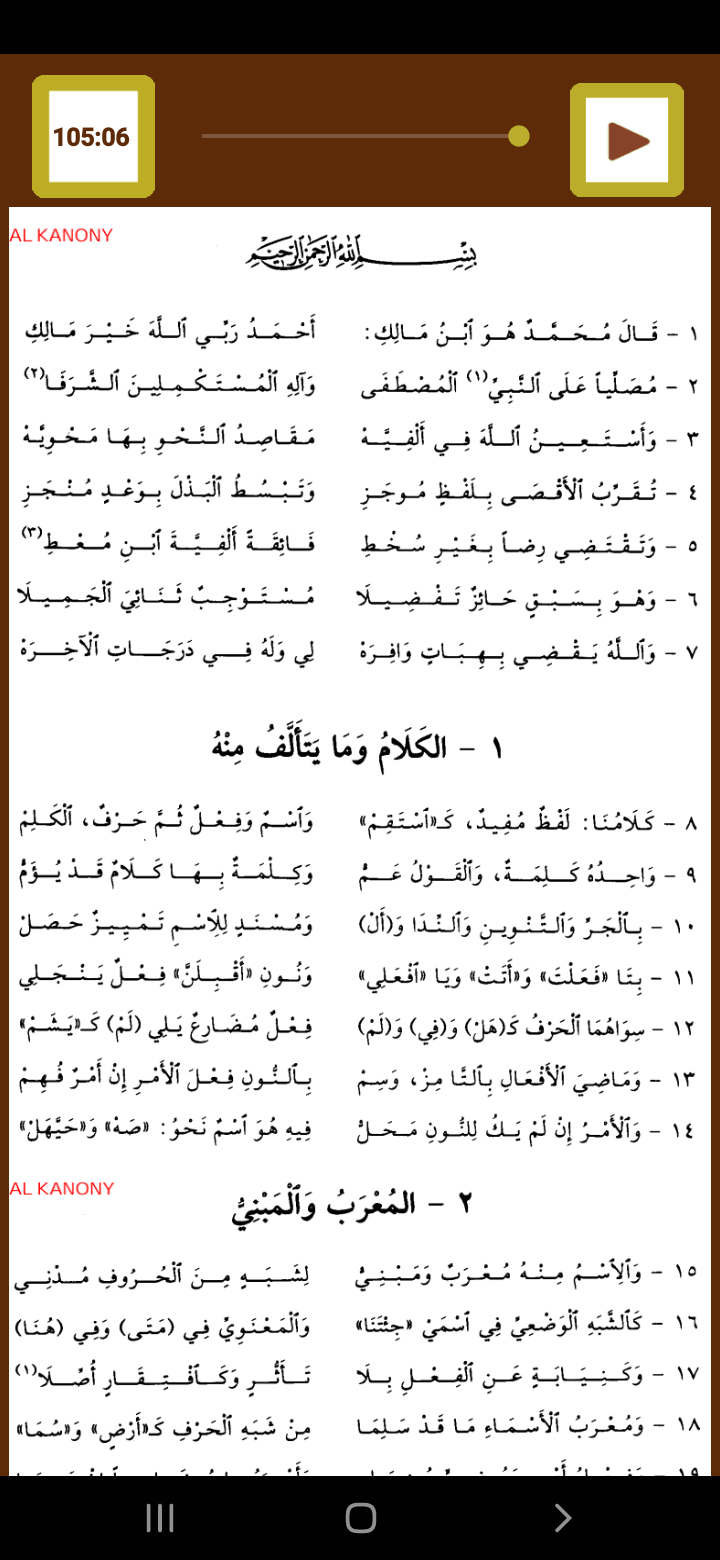 105:06
AL KANONY
بِسْمِ ٱللَّهِ ٱلرَّحْمَٰنِ ٱلرَّحِيمِ
١ - قَالَ مُحَمَّدٌ هُوَ ٱبْنُ مَالِكِ: أَحْمَدُ رَبِّي ٱللَّهَ خَيْرَ مَالِكِ
٢ - مُصَلِّياً عَلَى ٱلنَّبِيِّ(١) ٱلْمُصْطَفَى وَآلِهِ ٱلْمُسْتَكْمِلِينَ ٱلشَّرَفَا(٢)
٣ - وَأَسْتَعِينُ ٱللَّهَ فِي أَلْفِيَّهْ مَقَاصِدُ ٱلنَّحْوِ بِهَا مَحْوِيَّهْ
٤ - تُقَرِّبُ ٱلْأَقْصَى بِلَفْظٍ مُوجَزِ وَتَبْسُطُ ٱلْبَذْلَ بِوَعْدٍ مُنْجَزِ
٥ - وَتَقْتَضِي رِضاً بِغَيْرِ سُخْطِ فَائِقَةً أَلْفِيَّةَ ٱبْنِ مُعْطِ(٣)
٦ - وَهْوَ بِسَبْقٍ حَائِزٌ تَفْضِيلَا مُسْتَوْجِبٌ ثَنَائِيَ ٱلْجَمِيلَا
٧ - وَٱللَّهُ يَقْضِي بِهِبَاتٍ وَافِرَهْ لِي وَلَهُ فِي دَرَجَاتِ ٱلْآخِرَهْ
١ - الكَلَامُ وَمَا يَتَأَلَّفُ مِنْهُ
٨ - كَلَامُنَا: لَفْظٌ مُفِيدٌ، كَـ«ٱسْتَقِمْ» وَٱسْمٌ وَفِعْلٌ ثُمَّ حَرْفٌ، ٱلْكَلِمْ
٩ - وَاحِدُهُ كَلِمَةٌ، وَٱلْقَوْلُ عَمّْ وَكِلْمَةٌ بِهَا كَلَامٌ قَدْ يُؤَمّْ
١٠ - بِٱلْجَرِّ وَٱلتَّنْوِينِ وَٱلنِّدَا وَ(أَلْ) وَمُسْنَدٍ لِلِٱسْمِ تَمْيِيزٌ حَصَلْ
١١ - بِتَا «فَعَلْتَ» وَ«أَتَتْ» وَيَا «ٱفْعَلِي» وَنُونِ «أَقْبِلَنَّ» فِعْلٌ يَنْجَلِي
١٢ - سِوَاهُمَا ٱلْحَرْفُ كَـ(هَلْ) وَ(فِي) وَ(لَمْ) فِعْلٌ مُضَارِعٌ يَلِي (لَمْ) كَـ«يَشَمْ»
١٣ - وَمَاضِيَ ٱلْأَفْعَالِ بِٱلتَّا مِزْ، وَسِمْ بِٱلنُّونِ فِعْلَ ٱلْأَمْرِ إِنْ أَمْرٌ فُهِمْ
١٤ - وَٱلْأَمْرُ إِنْ لَمْ يَكُ لِلنُّونِ مَحَلّْ فِيهِ هُوَ ٱسْمٌ نَحْوُ: «صَهْ» وَ«حَيَّهَلْ»
AL KANONY
٢ - المُعْرَبُ وَٱلْمَبْنِيُّ
١٥ - وَٱلِٱسْمُ مِنْهُ مُعْرَبٌ وَمَبْنِيْ لِشَبَهٍ مِنَ ٱلْحُرُوفِ مُدْنِي
١٦ - كَٱلشَّبَهِ ٱلْوَضْعِيِّ فِي ٱسْمَيْ «جِئْتَنَا» وَٱلْمَعْنَوِيِّ فِي (مَتَى) وَفِي (هُنَا)
١٧ - وَكَنِيَابَةٍ عَنِ ٱلْفِعْلِ بِلَا تَأَثُّرٍ وَكَٱفْتِقَارٍ أُصِّلَا(١)
١٨ - وَمُعْرَبُ ٱلْأَسْمَاءِ مَا قَدْ سَلِمَا مِنْ شَبَهِ ٱلْحَرْفِ كَـ«أَرْضٍ» وَ«سُمَا»